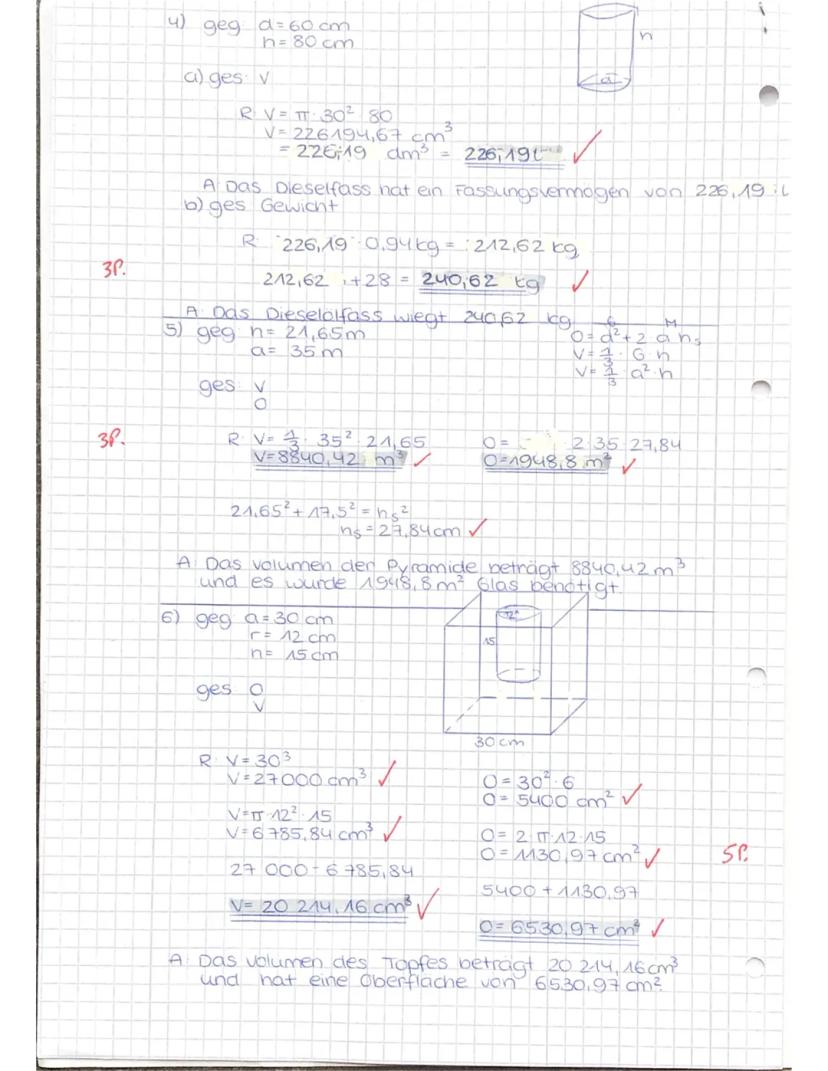 4) geg d=60cm
h=80cm
h
d
a) ges: V
R: V= π·30²·80
V=226194,67 cm³
= 226,19 dm³ = 226,19 l ✓
A: Das Dieselfass hat ein Fassungsvermögen von 226,19 l
b) ges Gewicht
R 226,19·0,94kg = 212,62 kg
3P.
212,62 + 28 = 240,62 kg ✓
A: Das Dieselölfass wiegt 240,62 kg
5) geg h= 21,65m
a= 35m
G M
O=a²+2·a·hs
V=1/3·G·h
V=1/3·a²·h
ges: V
O
3P.
R: V= 1/3·35²·21,65
V=8840,42 m³ ✓
O= 2·35·27,84
O=1948,8 m² ✓
21,65²+17,5² = hs²
hs = 27,84cm ✓
A: Das Volumen der Pyramide beträgt 8840,42m³
und es wurde 1948,8m² Glas benötigt
6) geg a=30 cm
r= 12 cm
h= 15 cm
12
15
30cm
ges O
V
R: V=30³
V=27000cm³ ✓
O=30²·6
O=5400 cm² ✓
V=π·12²·15
V=6785,84cm³ ✓
O= 2·π·12·15
O=1130,97cm² ✓
5P.
27 000-6785,84
5400+1130,97
V= 20 214,16 cm³ ✓
O=6530,97 cm² ✓
A: Das Volumen des Topfes beträgt 20 214,16cm³
und hat eine Oberfläche von 6530,97cm².